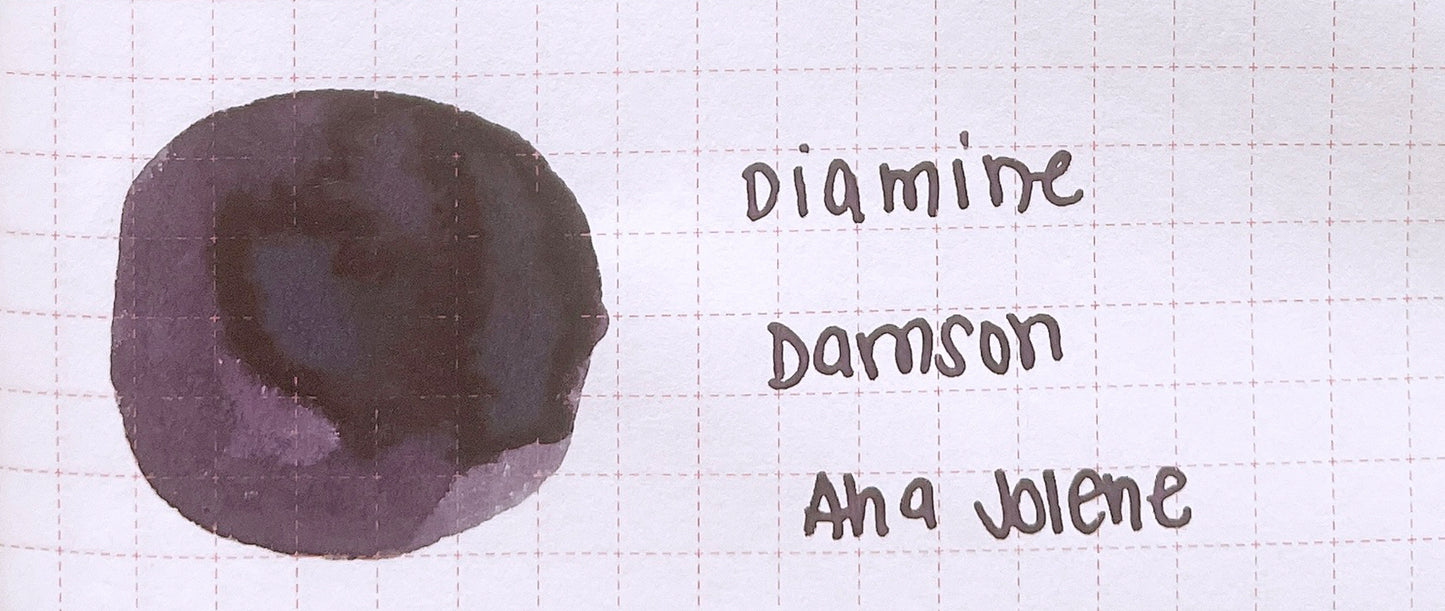 Diamine
Damson
Aha Jolene